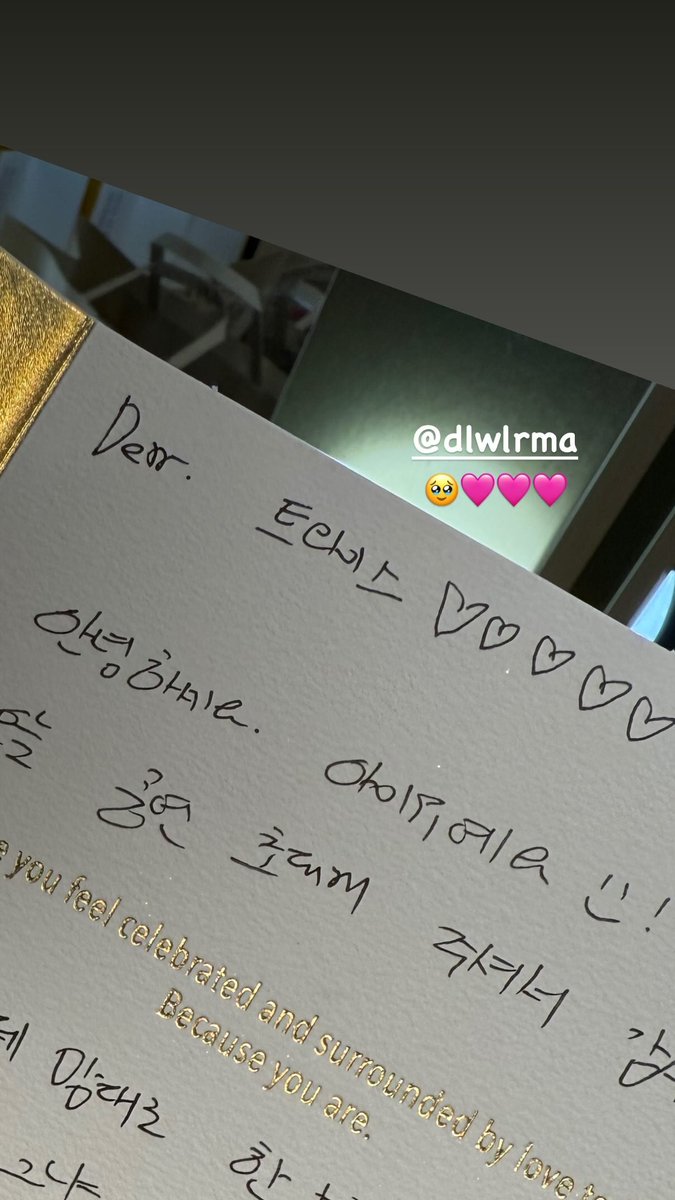 @dlwlrma
🥹🩷🩷🩷
Dear. 트와이스 ♡♡♡♡♡
안녕하세요. 아이유에요 :)!
공연 초대해 주셔서 감
you feel celebrated and surrounded by love
Because you are.
맘대로 한